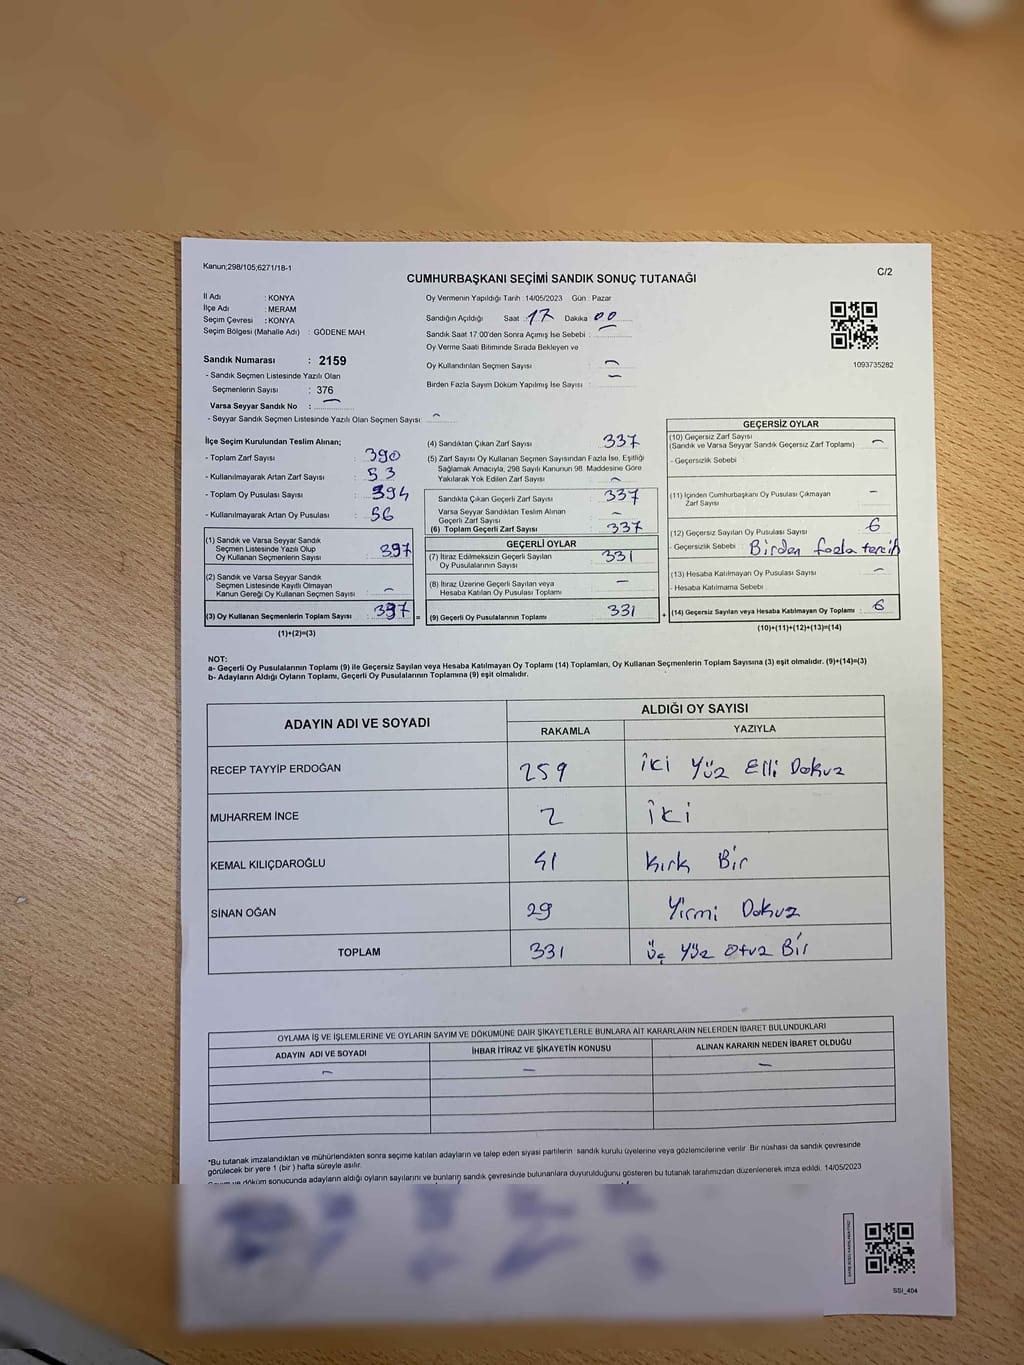 Kanun;298/105;6271/18-1
CUMHURBAŞKANI SEÇİMİ SANDIK SONUÇ TUTANAĞI
C/2
İl Adı : KONYA
İlçe Adı : MERAM
Seçim Çevresi : KONYA
Seçim Bölgesi (Mahalle Adı) : GÖDENE MAH.
Sandık Numarası : 2159
- Sandık Seçmen Listesinde Yazılı Olan
Seçmenlerin Sayısı : 376
Varsa Seyyar Sandık No : –
- Seyyar Sandık Seçmen Listesinde Yazılı Olan Seçmen Sayısı: –
Oy Vermenin Yapıldığı Tarih :14/05/2023 Gün : Pazar
Sandığın Açıldığı Saat : 17 Dakika 00
Sandık Saat 17:00'den Sonra Açımış İse Sebebi : –
Oy Verme Saati Bitiminde Sırada Bekleyen ve
Oy Kullandırılan Seçmen Sayısı : –
Birden Fazla Sayım Döküm Yapılmış İse Sayısı : –
1093735282
İlçe Seçim Kurulundan Teslim Alınan;
- Toplam Zarf Sayısı : 390
- Kullanılmayarak Artan Zarf Sayısı : 53
- Toplam Oy Pusulası Sayısı : 394
- Kullanılmayarak Artan Oy Pusulası : 56
(1) Sandık ve Varsa Seyyar Sandık
Seçmen Listesinde Yazılı Olup
Oy Kullanan Seçmenlerin Sayısı : 337
(2) Sandık ve Varsa Seyyar Sandık
Seçmen Listesinde Kayıtlı Olmayan
Kanun Gereği Oy Kullanan Seçmen Sayısı : –
(3) Oy Kullanan Seçmenlerin Toplam Sayısı : 337 =
(1)+(2)=(3)
(4) Sandıktan Çıkan Zarf Sayısı 337
(5) Zarf Sayısı Oy Kullanan Seçmen Sayısından Fazla İse, Eşitliği
Sağlamak Amacıyla; 298 Sayılı Kanunun 98. Maddesine Göre
Yakılarak Yok Edilen Zarf Sayısı : –
Sandıkta Çıkan Geçerli Zarf Sayısı 337
Varsa Seyyar Sandıktan Teslim Alınan
Geçerli Zarf Sayısı : –
(6) Toplam Geçerli Zarf Sayısı : 337
GEÇERLİ OYLAR
(7) İtiraz Edilmeksizin Geçerli Sayılan
Oy Pusulalarının Sayısı 331
(8) İtiraz Üzerine Geçerli Sayılan veya
Hesaba Katılan Oy Pusulası Toplamı –
(9) Geçerli Oy Pusulalarının Toplamı 331 +
GEÇERSİZ OYLAR
(10) Geçersiz Zarf Sayısı
(Sandık ve Varsa Seyyar Sandık Geçersiz Zarf Toplamı) –
- Geçersizlik Sebebi :
(11) İçinden Cumhurbaşkanı Oy Pusulası Çıkmayan
Zarf Sayısı –
(12) Geçersiz Sayılan Oy Pusulası Sayısı 6
- Geçersizlik Sebebi : Birden fazla tercih
(13) Hesaba Katılmayan Oy Pusulası Sayısı –
- Hesaba Katılmama Sebebi :
(14) Geçersiz Sayılan veya Hesaba Katılmayan Oy Toplamı : 6
(10)+(11)+(12)+(13)=(14)
NOT:
a- Geçerli Oy Pusulalarının Toplamı (9) ile Geçersiz Sayılan veya Hesaba Katılmayan Oy Toplamı (14) Toplamları, Oy Kullanan Seçmenlerin Toplam Sayısına (3) eşit olmalıdır. (9)+(14)=(3)
b- Adayların Aldığı Oyların Toplamı, Geçerli Oy Pusulalarının Toplamına (9) eşit olmalıdır.
ADAYIN ADI VE SOYADI ALDIĞI OY SAYISI
RAKAMLA YAZIYLA
RECEP TAYYİP ERDOĞAN 259 iki Yüz Elli Dokuz
MUHARREM İNCE 2 iki
KEMAL KILIÇDAROĞLU 41 kırk Bir
SİNAN OĞAN 29 Yirmi Dokuz
TOPLAM 331 üç Yüz Otuz Bir
OYLAMA İŞ VE İŞLEMLERİNE VE OYLARIN SAYIM VE DÖKÜMÜNE DAİR ŞİKAYETLERLE BUNLARA AİT KARARLARIN NELERDEN İBARET BULUNDUKLARI
ADAYIN ADI VE SOYADI İHBAR İTİRAZ VE ŞİKAYETİN KONUSU ALINAN KARARIN NEDEN İBARET OLDUĞU
– – –
*Bu tutanak imzalandıktan ve mühürlendikten sonra seçime katılan adayların ve talep eden siyasi partilerin sandık kurulu üyelerine veya gözlemcilerine verilir. Bir nüshası da sandık çevresinde
görülecek bir yere 1 (bir) hafta süreyle asılır.
ve döküm sonucunda adayların aldığı oyların sayılarını ve bunların sandık çevresinde bulunanlara duyurulduğunu gösteren bu tutanak tarafımızdan düzenlenerek imza edildi. 14/05/2023
SSI_404